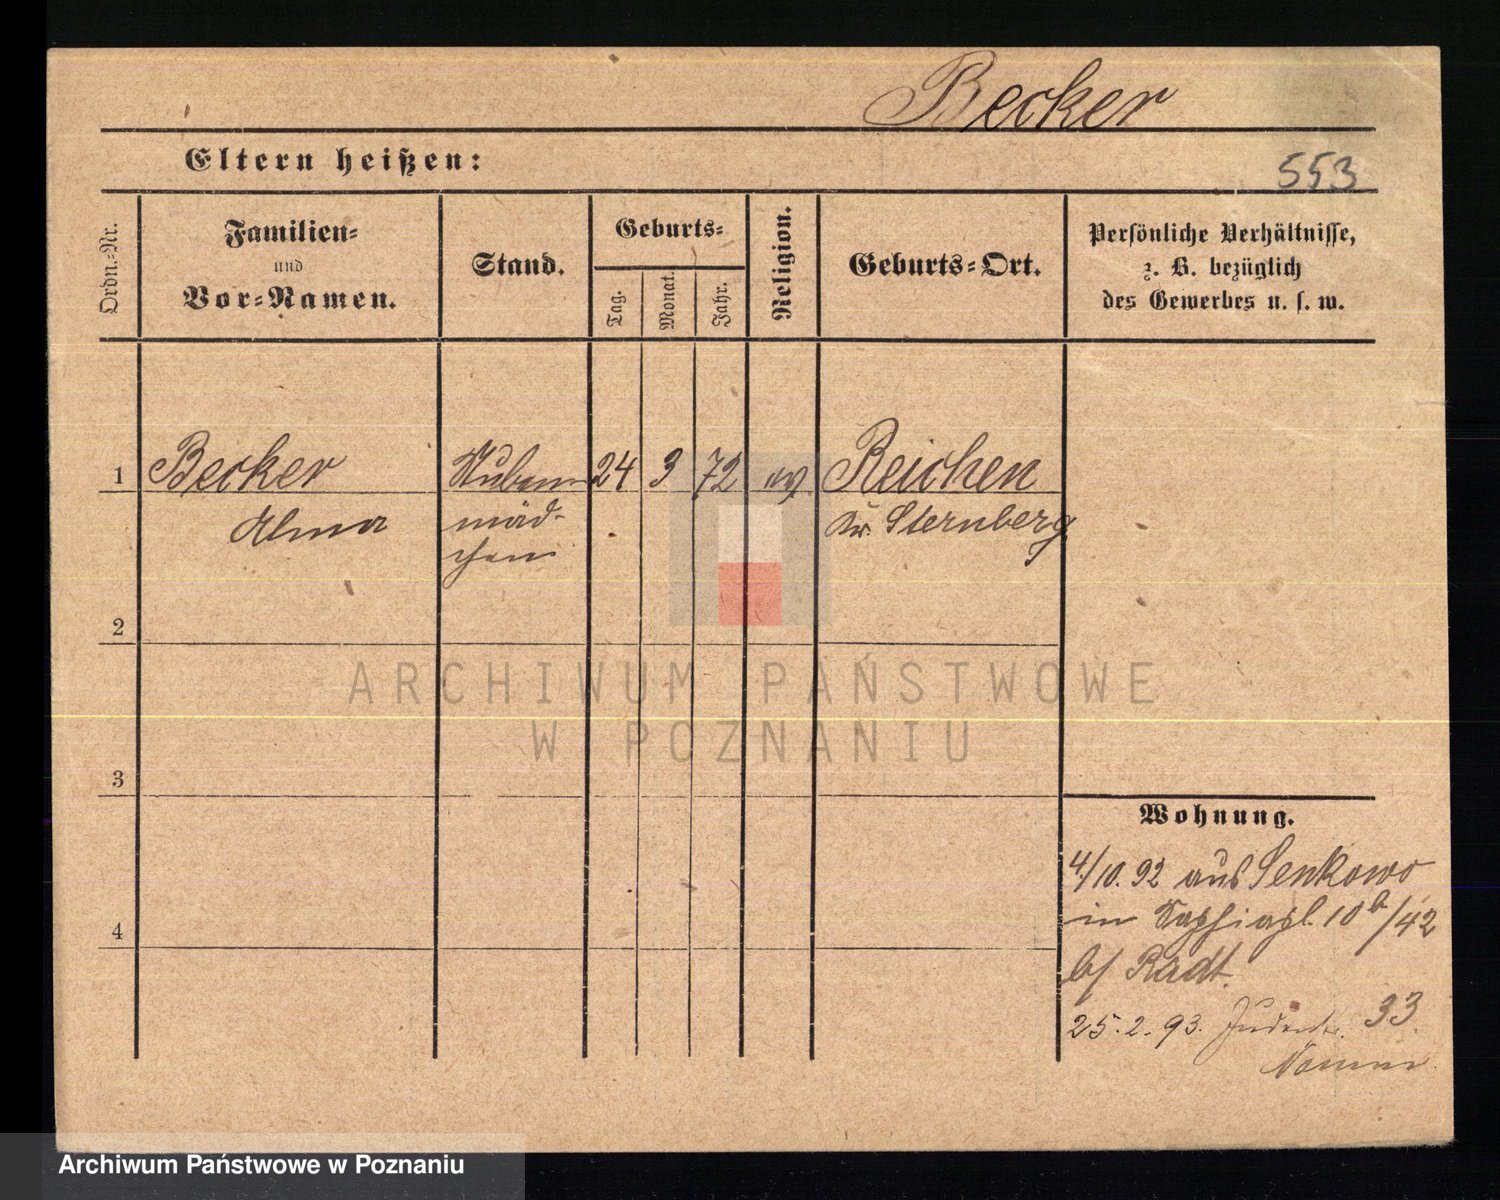 Becker
Eltern heißen:
553
Ordn.-Nr.
Familien-
und
Vor-Namen.
Stand.
Geburts-
Tag.
Monat.
Jahr.
Religion.
Geburts-Ort.
Persönliche Verhältnisse,
z. B. bezüglich
des Gewerbes u. s. w.
1 Becker Stuben 24 3 72 ev Reichen
Alma mäd- Kr. Sternberg
chen
2
3
4
Wohnung.
4/10. 92 aus Senkowo
in 10b/42
b/ Radt.
25. 2. 93. Judenstr. 33.
ARCHIWUM PAŃSTWOWE
W POZNANIU
Archiwum Państwowe w Poznaniu